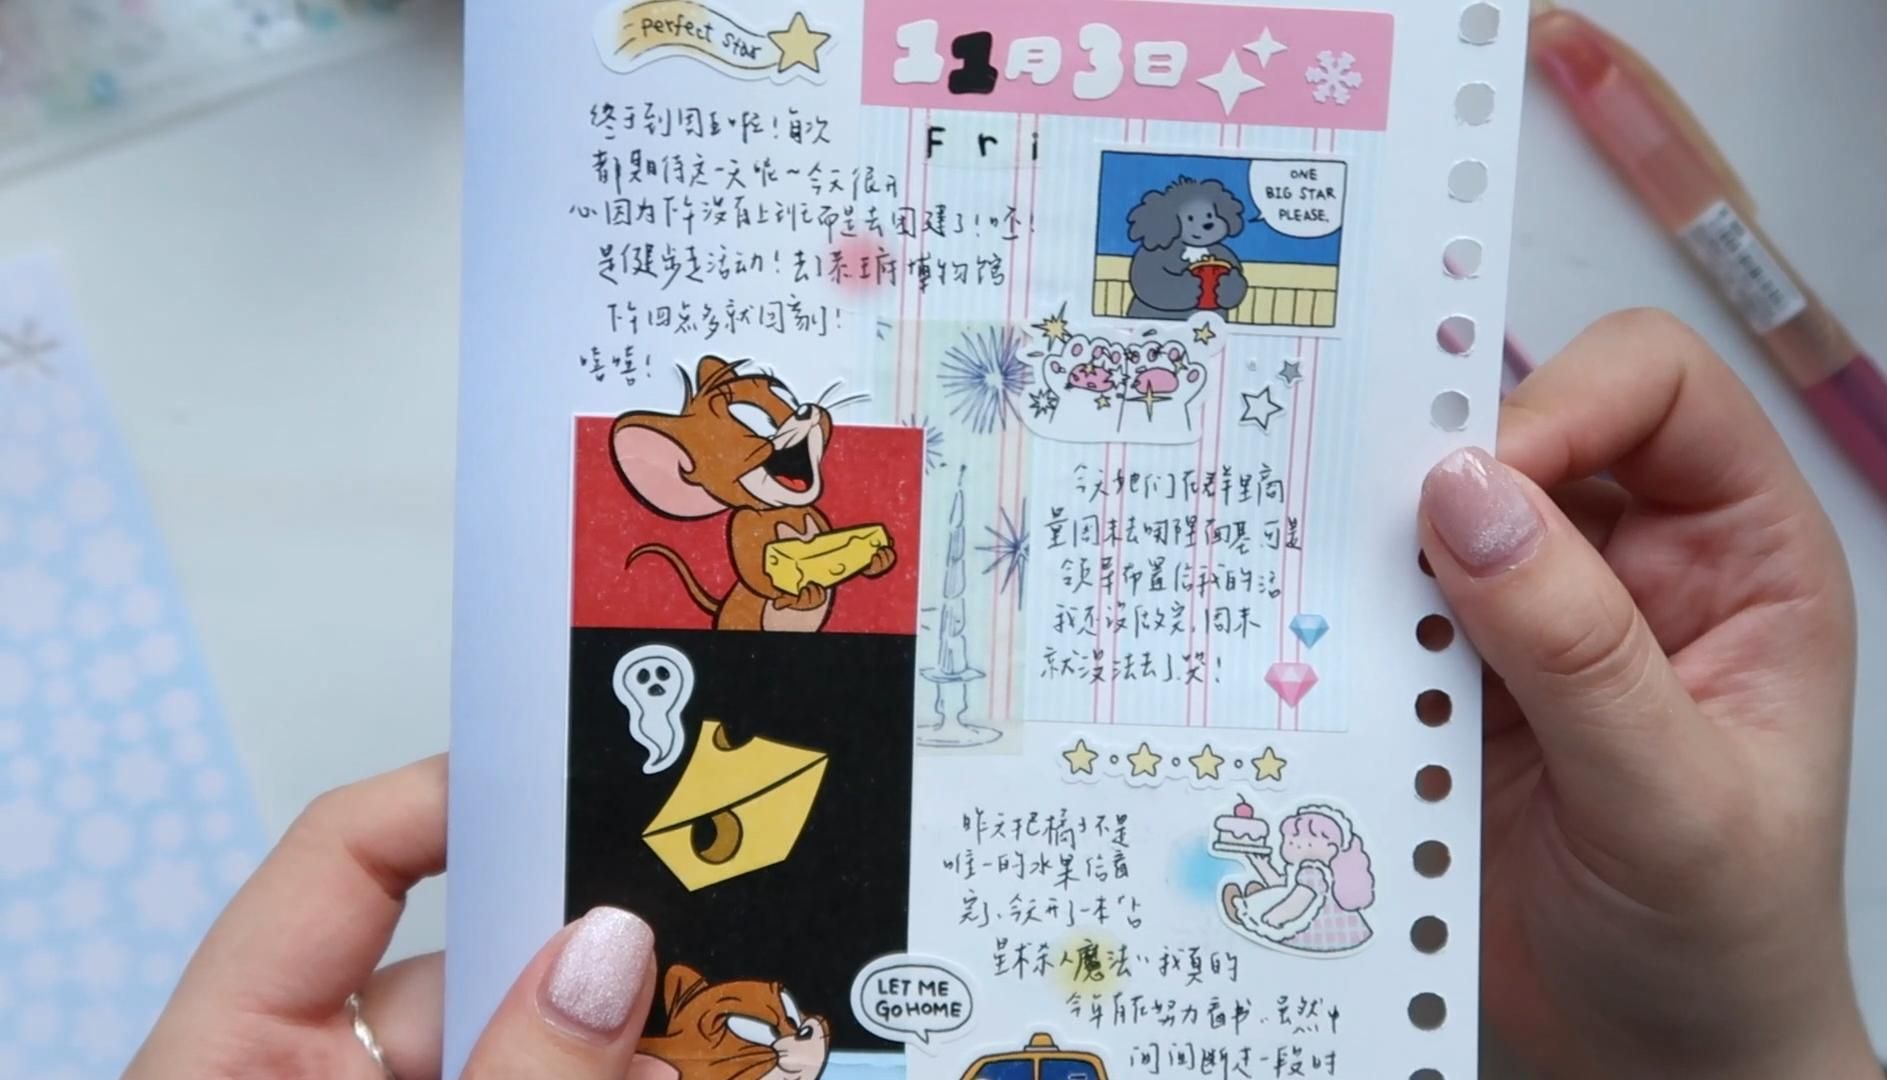 perfect star
11月3日
Fri
终于到周五啦！每次
都期待这一天呢~今天很开
心因为下午没有上班而是去团建了！呸！
是健步走活动！去了恭王府博物馆
下午四点多就回家了！
嘻嘻！
ONE
BIG STAR
PLEASE.
今天她们在群里商
量周末去 面基可是
领导布置给我的活
我还没做完，周末
就没法去了，哭！
昨天把橘子不是
唯一的水果给看
完了，今天开了一本“占
星术杀人魔法”我真的
今年有在努力看书，虽然中
间间断过一段时
LET ME
GO HOME